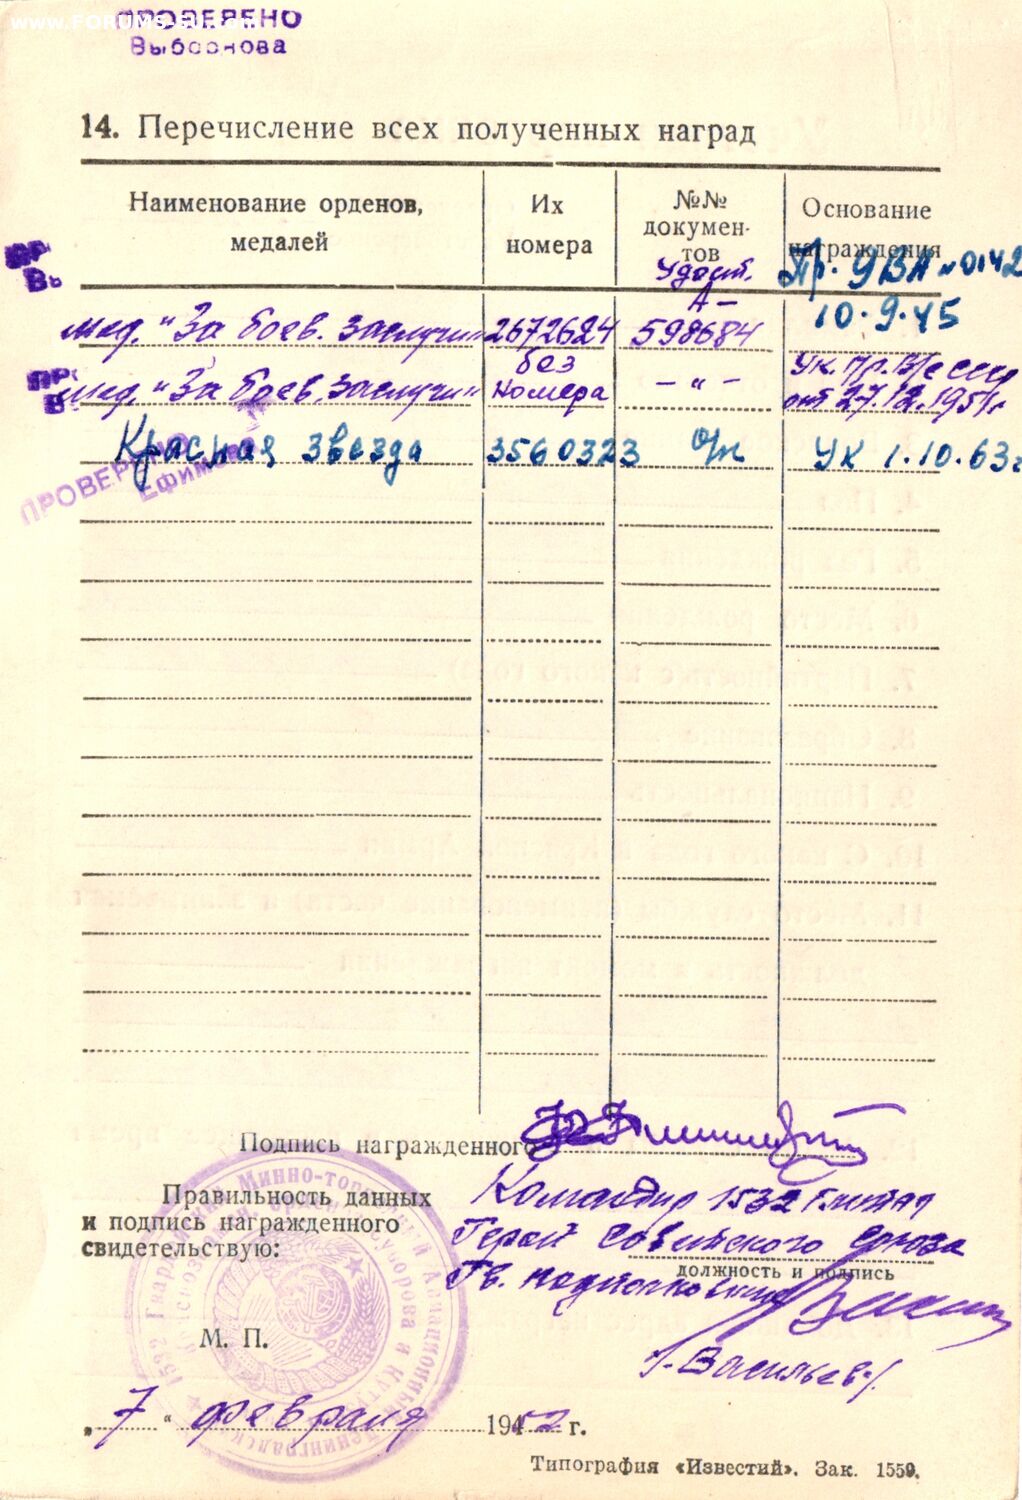 www.FORUMS-SU.com
ПРОВЕРЕНО
Выборнова
14. Перечисление всех полученных наград
Наименование орденов, медалей
Их номера
№№ документов
Основание награждения
Удост.
Пр. УВА № 0142
10.9.45
мед. "За боев. заслуги" 2672624 А-598684
мед. "За боев. заслуги" без номера — " — Ук. Пр. В/с СССР от 27.12.1951г
Красная звезда 3560323 Ук 1.10.63г
ПРОВЕРЕНО
Ефимова
Подпись награжденного
Правильность данных
и подпись награжденного
свидетельствую:
Командир 1532
Герой Советского Союза
Гв. подполковник
должность и подпись
/Васильев/
М. П.
„ 7 " февраля 1952 г.
Типография «Известий». Зак. 1559.